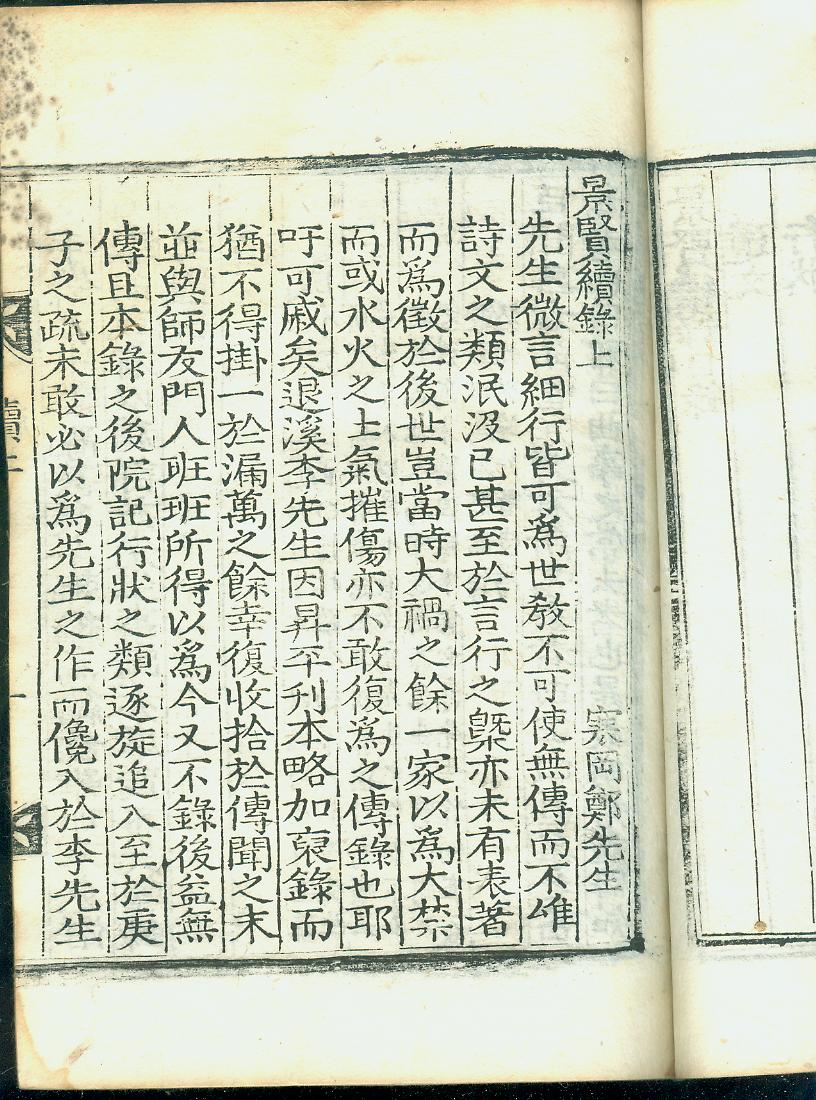 景賢續錄上
寒岡鄭先生
先生微言細行皆可爲世敎不可使無傳而不唯
詩文之類泯沒已甚至於言行之槩亦未有表著
而爲徵於後世豈當時大禍之餘一家以爲大禁
而或水火之士氣摧傷亦不敢復爲之傳錄也耶
吁可戚矣退溪李先生因昇平刊本略加裒錄而
猶不得掛一於漏萬之餘幸復收拾於傳聞之末
並與師友門人班班所得以爲今又不錄後益無
傳且本錄之後院記行狀之類逐旋追入至於庚
子之疏未敢必以爲先生之作而儳入於李先生
續上
一